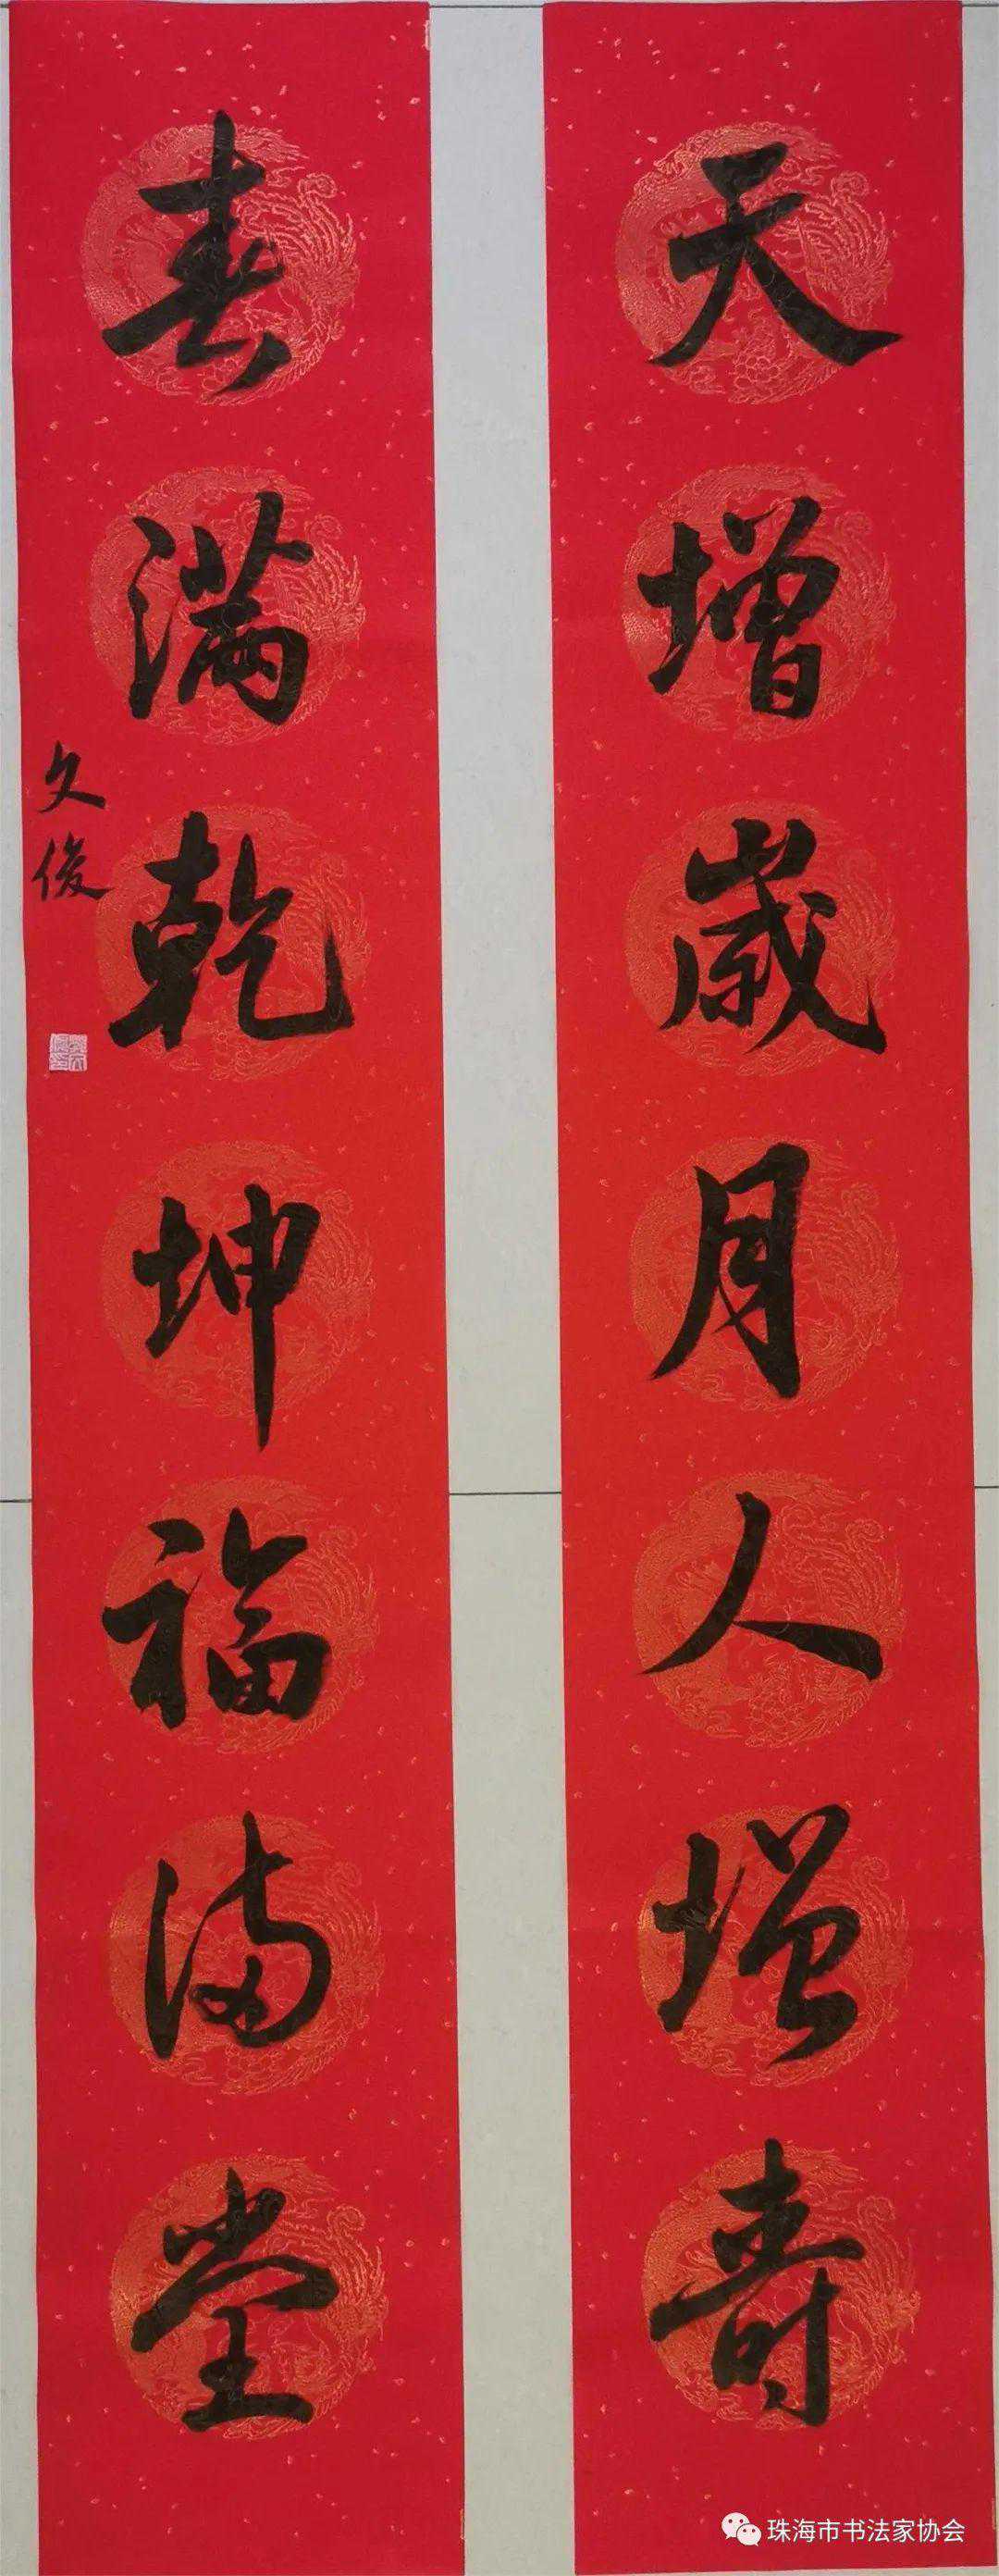 天增歲月人增寿
春满乾坤福满堂
文俊
珠海市书法家协会